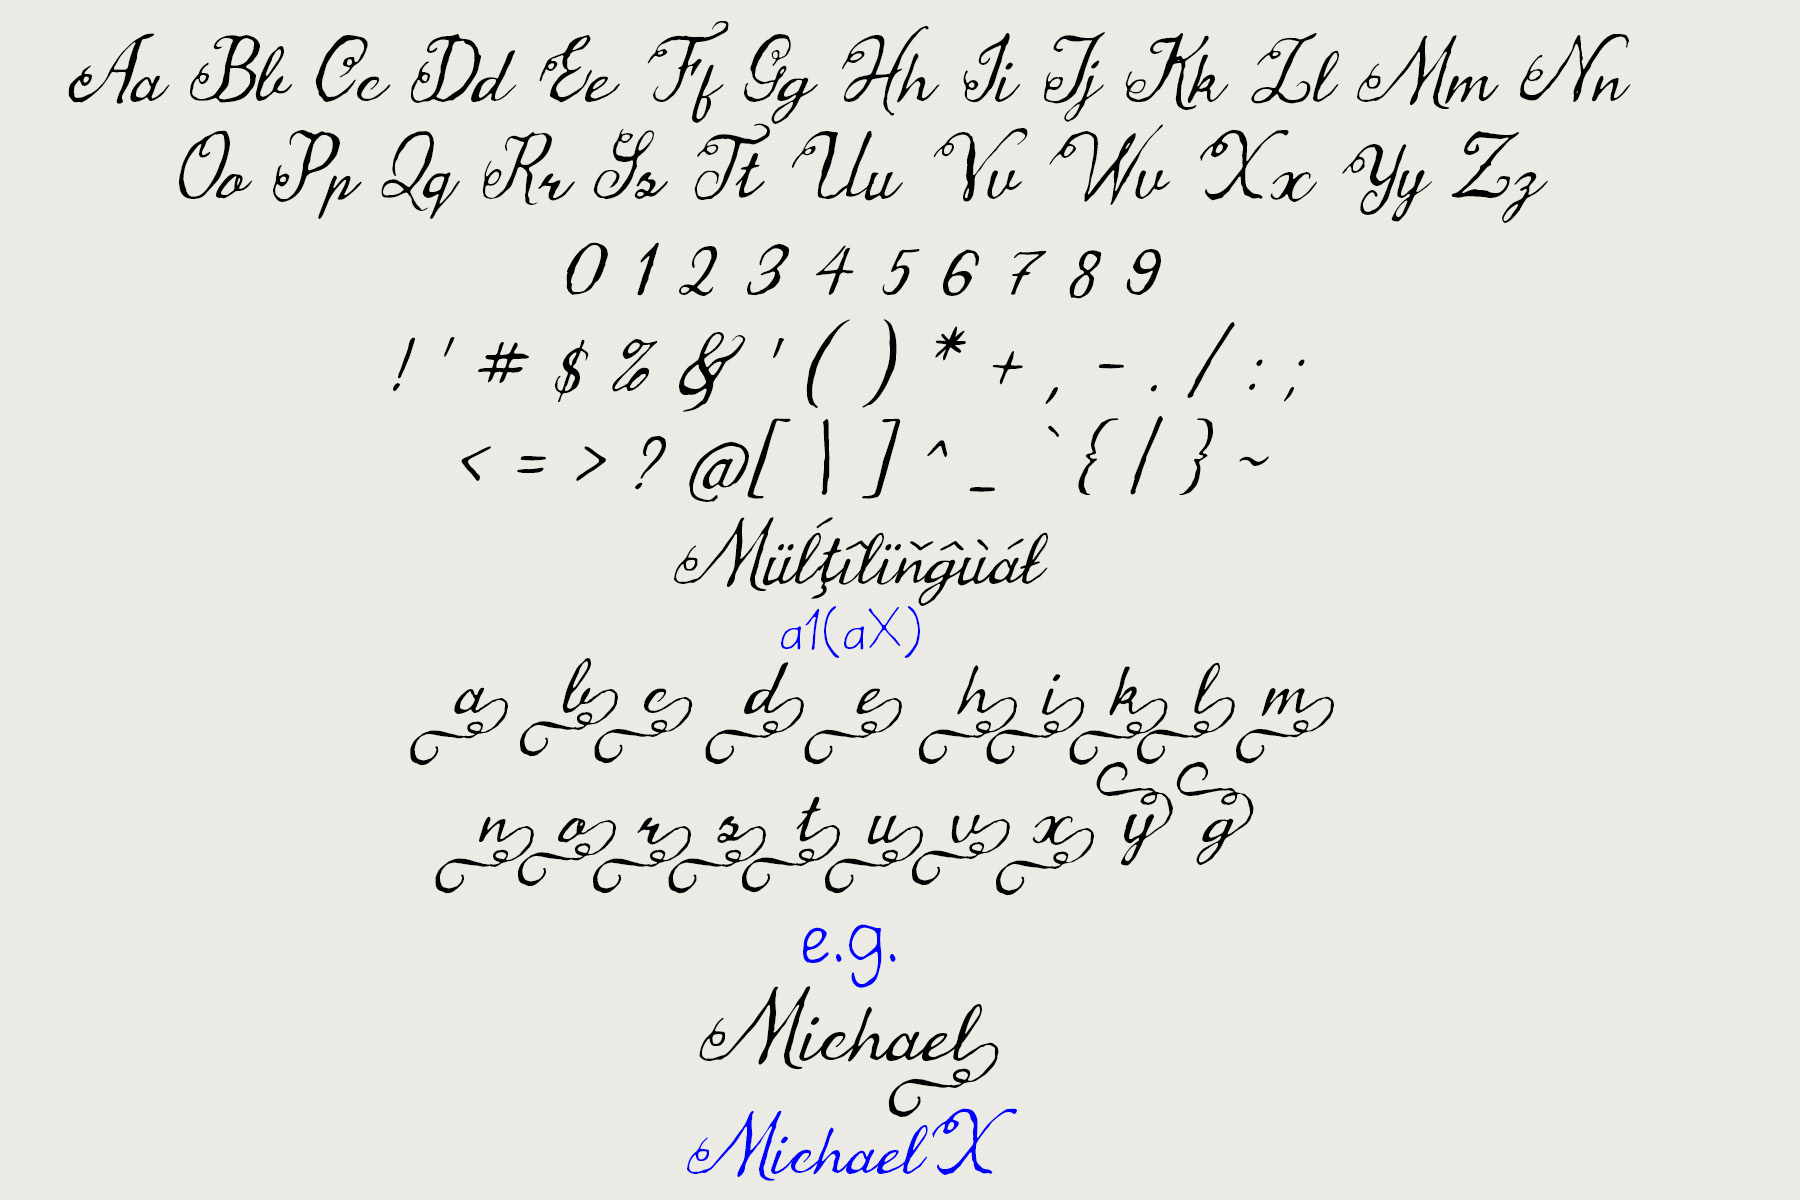 Aa Bb Cc Dd Ee Ff Gg Hh Ii Jj Kk Ll Mm Nn
Oo Pp Qq Rr Ss Tt Uu Vv Wv Xx Yy Zz
0 1 2 3 4 5 6 7 8 9
! ' # $ % & ' ( ) * + , - . / : ;
< = > ? @ [ \ ] ^ _ ` { | } ~
Müĺţîlïňĝùáł
a1(aX)
a b c d e h i k l m
n o r s t u v x y g
e.g.
Michael
MichaelX